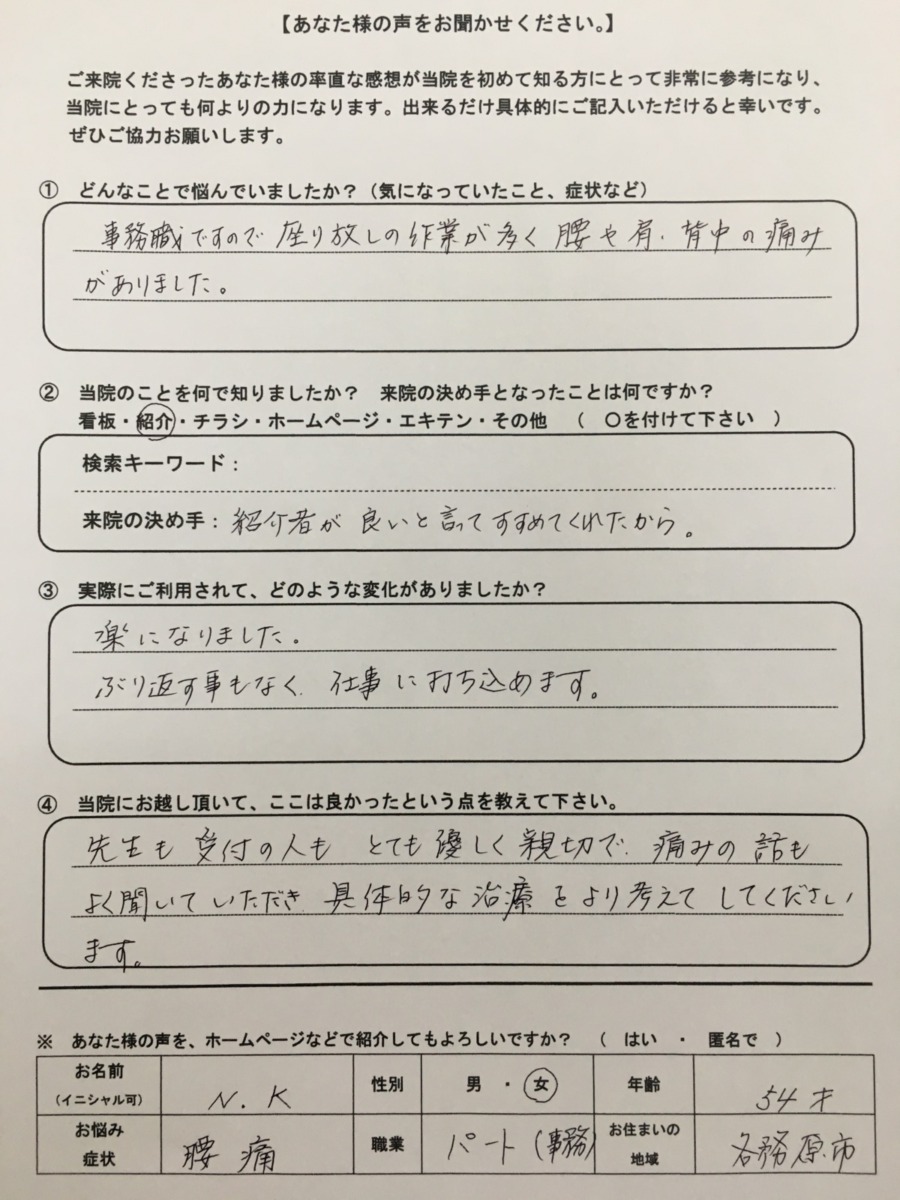 【あなた様の声をお聞かせください。】
ご来院くださったあなた様の率直な感想が当院を初めて知る方にとって非常に参考になり、
当院にとっても何よりの力になります。出来るだけ具体的にご記入いただけると幸いです。
ぜひご協力お願いします。
① どんなことで悩んでいましたか？（気になっていたこと、症状など）
事務職ですので座り放しの作業が多く腰や肩、背中の痛み
がありました。
② 当院のことを何で知りましたか？ 来院の決め手となったことは何ですか？
看板・紹介・チラシ・ホームページ・エキテン・その他 （ 〇を付けて下さい ）
検索キーワード：
来院の決め手：紹介者が良いと言ってすすめてくれたから。
③ 実際にご利用されて、どのような変化がありましたか？
楽になりました。
ぶり返す事もなく、仕事に打ち込めます。
④ 当院にお越し頂いて、ここは良かったという点を教えて下さい。
先生も受付の人もとても優しく親切で、痛みの話も
よく聞いていただき、具体的な治療をより考えてしてください
ます。
※ あなた様の声を、ホームページなどで紹介してもよろしいですか？ （ はい ・ 匿名で ）
お名前（イニシャル可） N.K 性別 男 ・ 女 年齢 54才
お悩み症状 腰痛 職業 パート（事務） お住まいの地域 各務原市